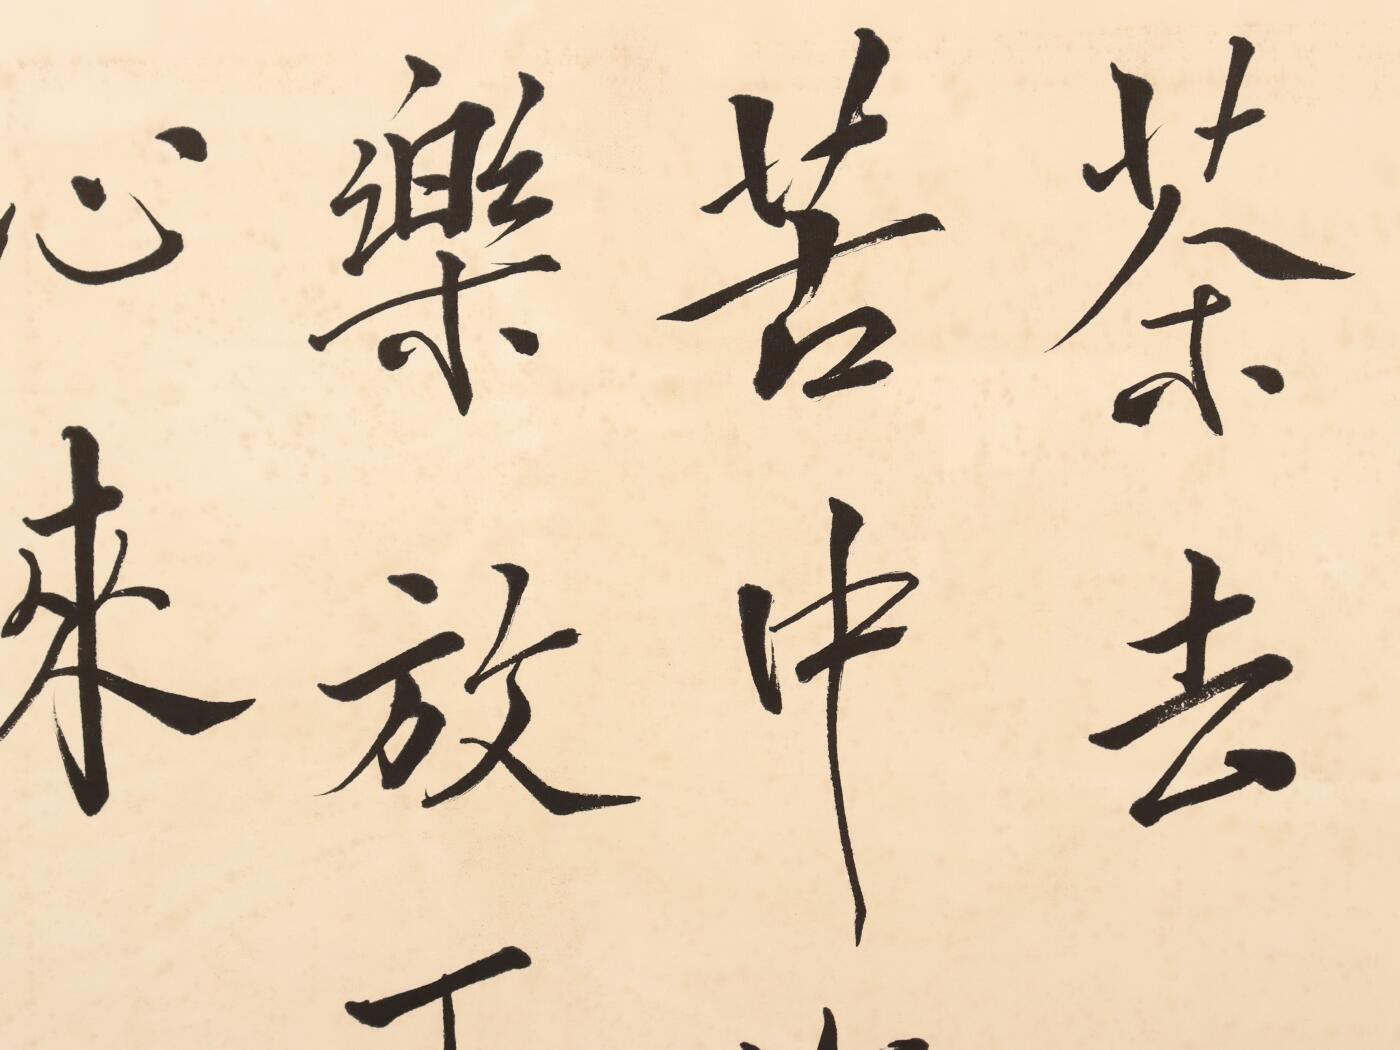 茶去
苦中
樂放
心來